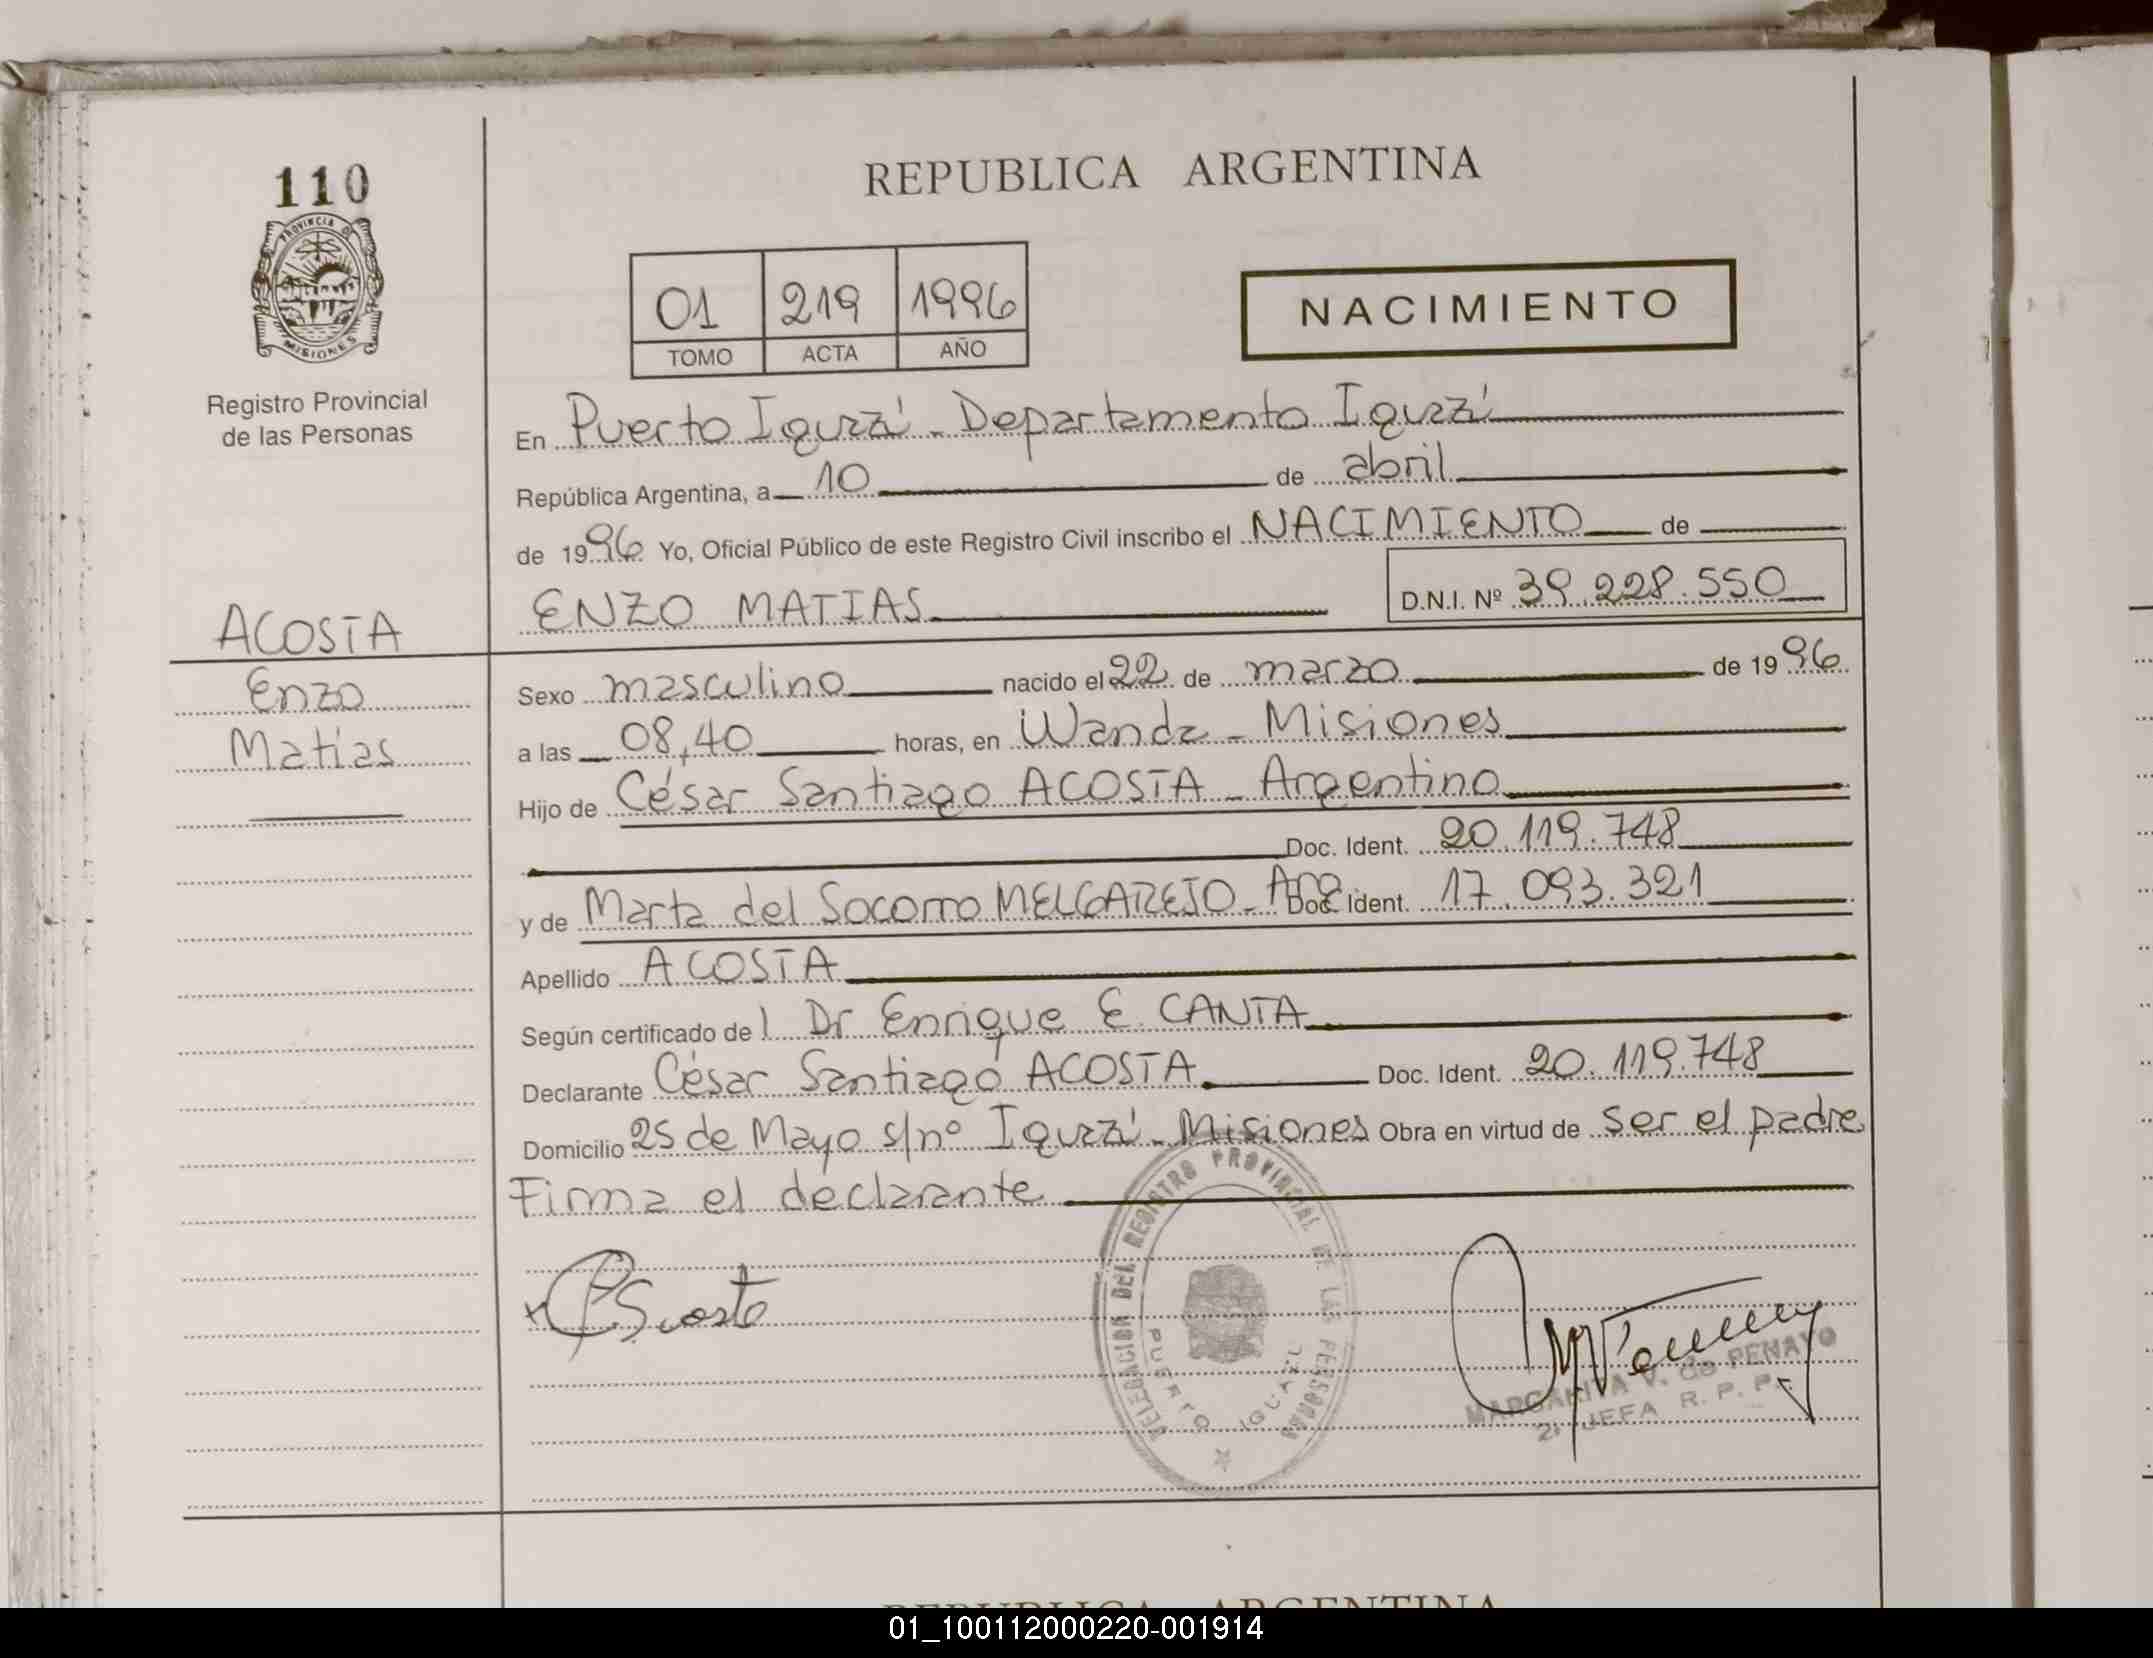 110
PROVINCIA DE
MISIONES
Registro Provincial
de las Personas
REPUBLICA ARGENTINA
01 219 1996
TOMO ACTA AÑO
NACIMIENTO
En Puerto Iguazú - Departamento Iguazú
República Argentina, a 10 de abril
de 1996 Yo, Oficial Público de este Registro Civil inscribo el NACIMIENTO de
ENZO MATIAS D.N.I. Nº 39.228.550
ACOSTA
Enzo
Matias
Sexo masculino nacido el 22 de marzo de 1996
a las 08,40 horas, en Wanda - Misiones
Hijo de César Santiago ACOSTA - Argentino
Doc. Ident. 20.119.748
y de Marta del Socorro MELGAREJO - Arg Doc. Ident. 17.093.321
Apellido ACOSTA
Según certificado de l Dr Enrique E. CANTA
Declarante César Santiago ACOSTA Doc. Ident. 20.119.748
Domicilio 25 de Mayo s/nº Iguazú - Misiones Obra en virtud de ser el padre
Firma el declarante
DELEGACION DEL REGISTRO PROVINCIAL DE LAS PERSONAS
PUERTO IGUAZU
MARGARITA V. de PENAYO
2ª JEFA R. P. P.
REPUBLICA ARGENTINA
01_100112000220-001914